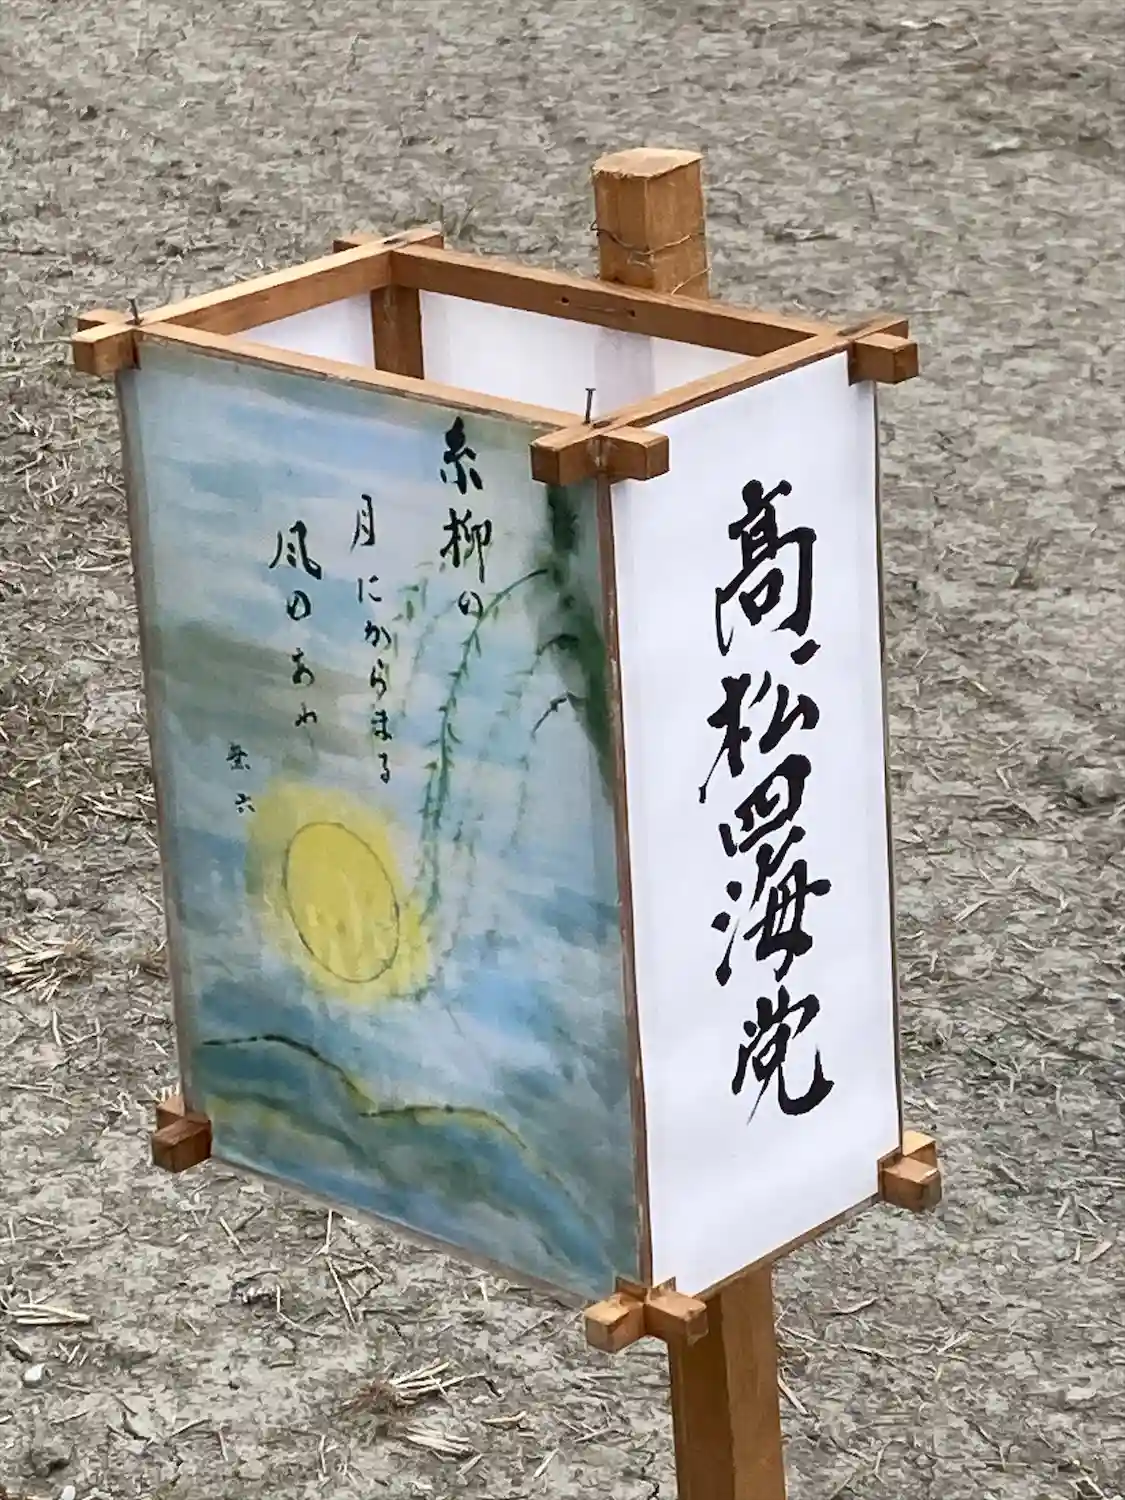 糸柳の
月にからまる
風のあり
高松四海党